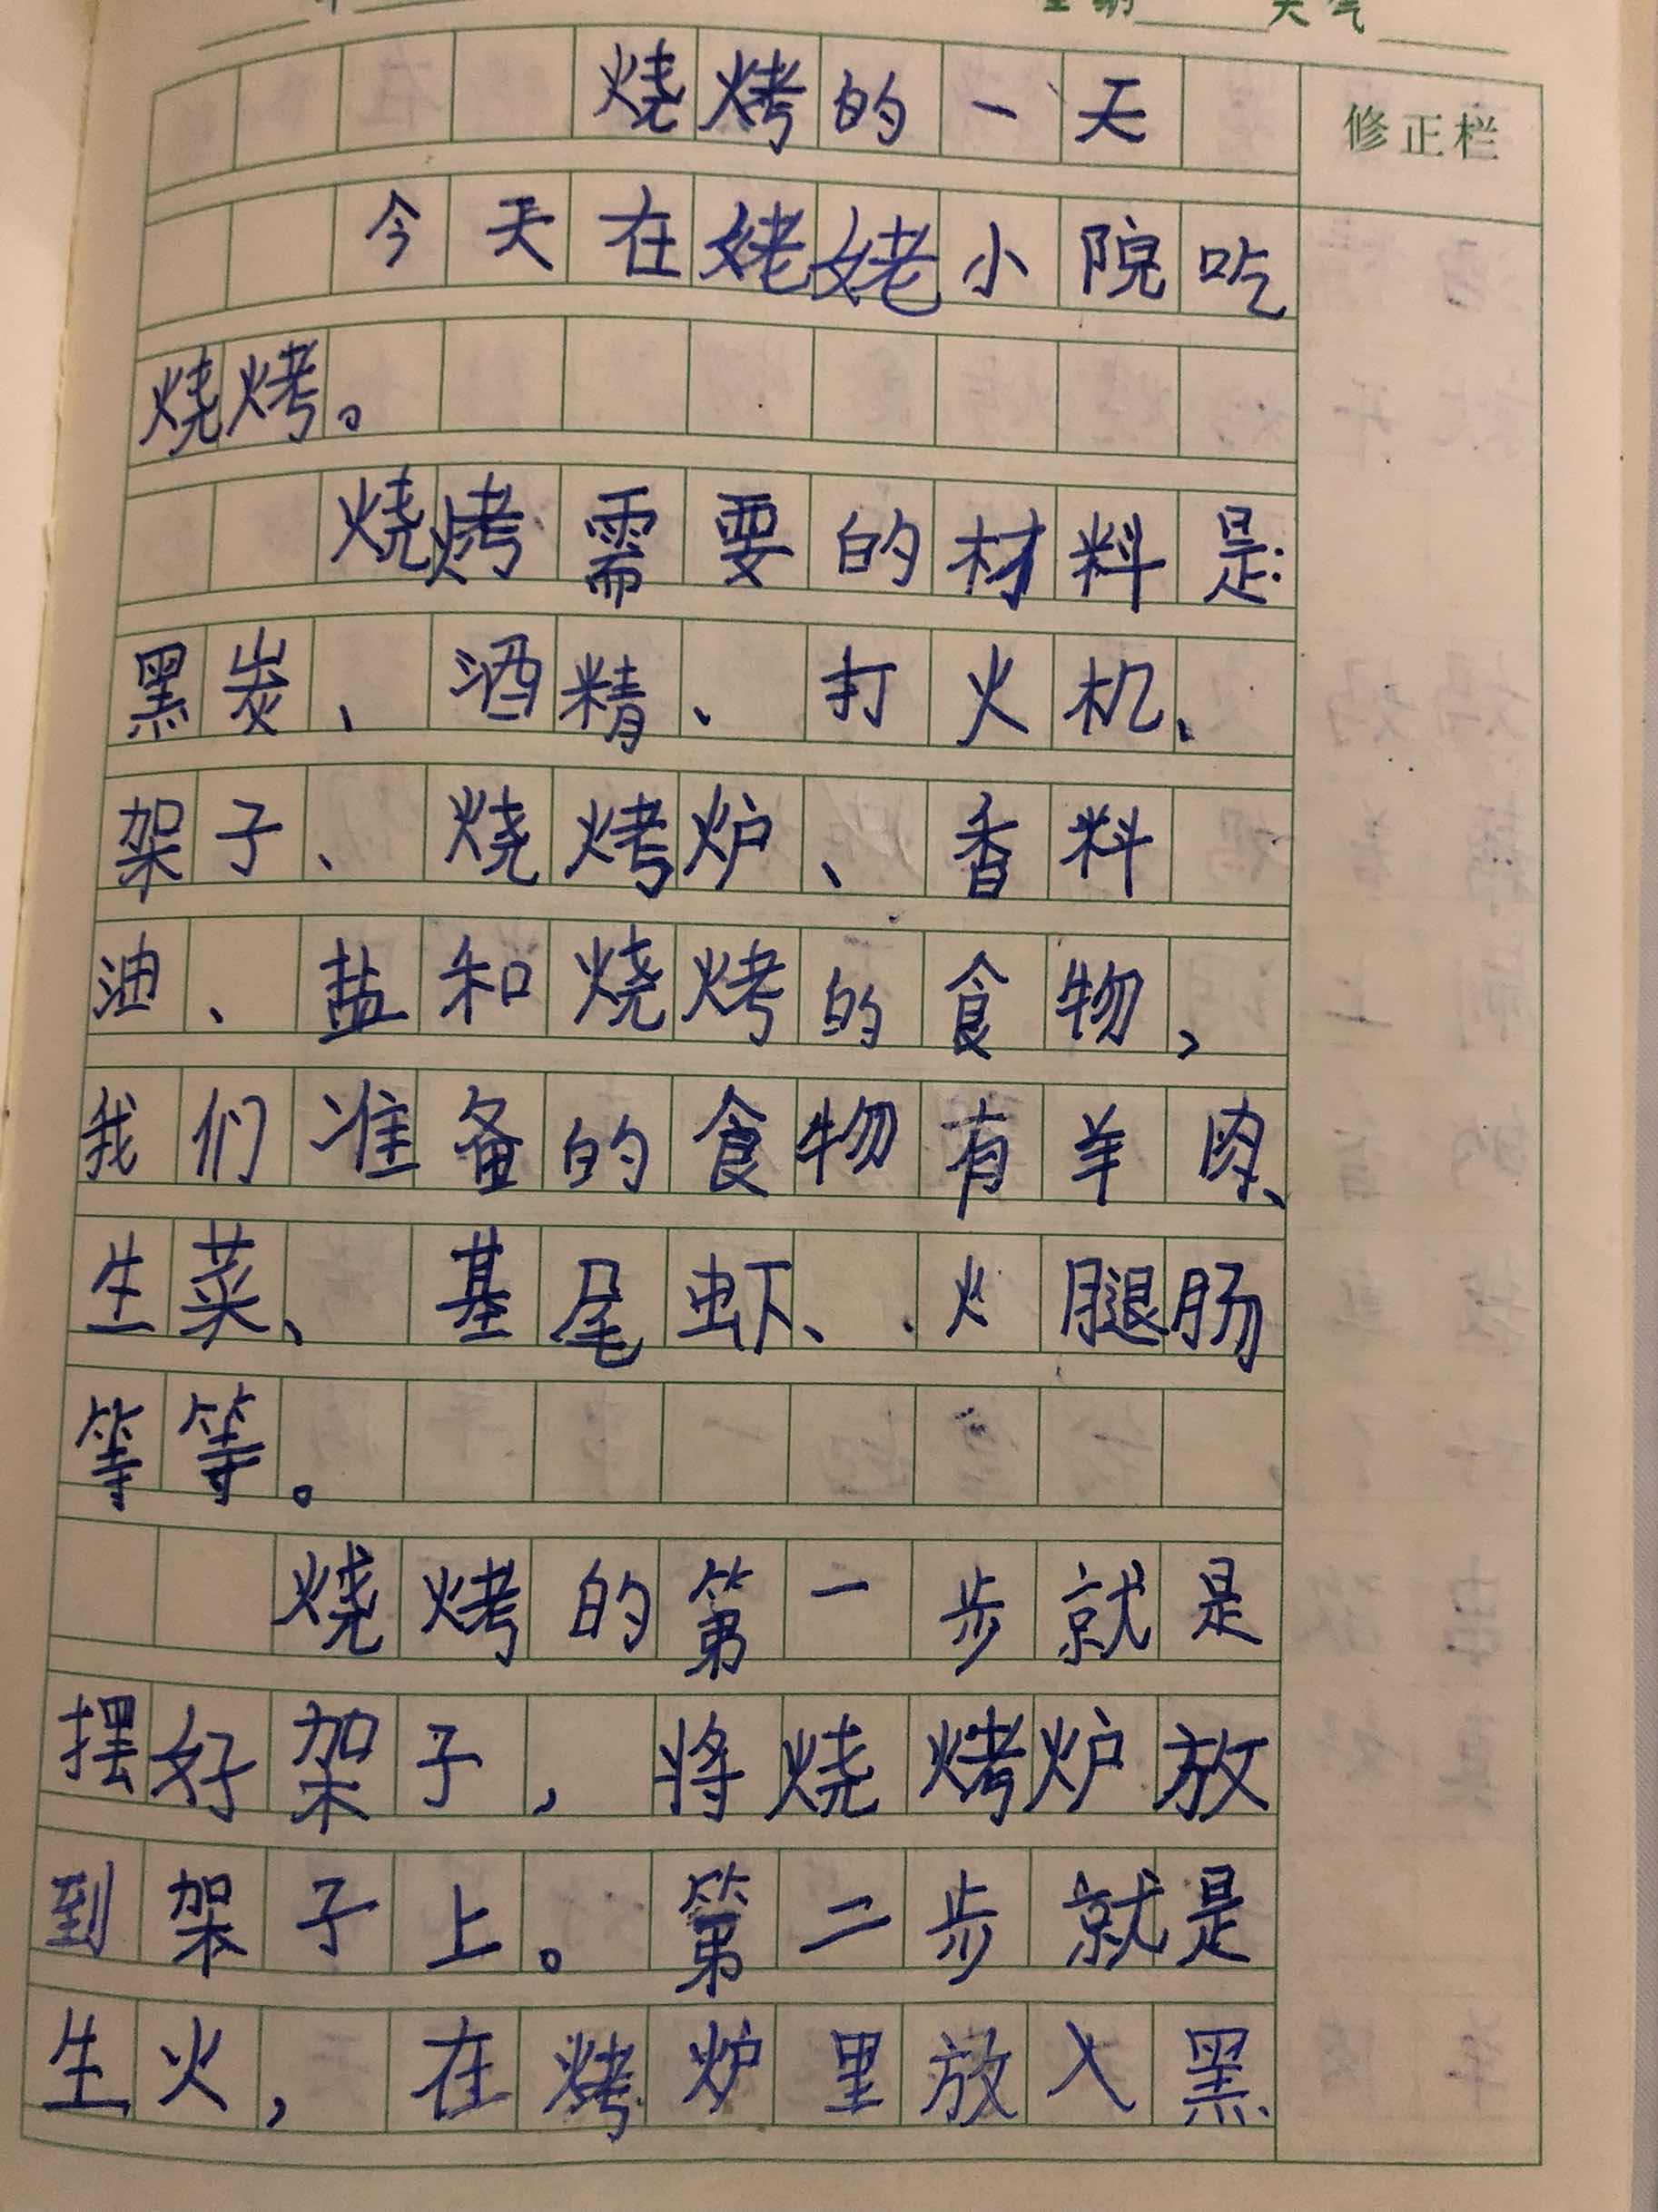 星期 天气
烧烤的一天
修正栏
今天在姥姥小院吃
烧烤。
烧烤需要的材料是:
黑炭、酒精、打火机、
架子、烧烤炉、香料
油、盐和烧烤的食物,
我们准备的食物有羊肉、
生菜、基尾虾、火腿肠
等等。
烧烤的第一步就是
摆好架子,将烧烤炉放
到架子上。第二步就是
生火,在烤炉里放入黑